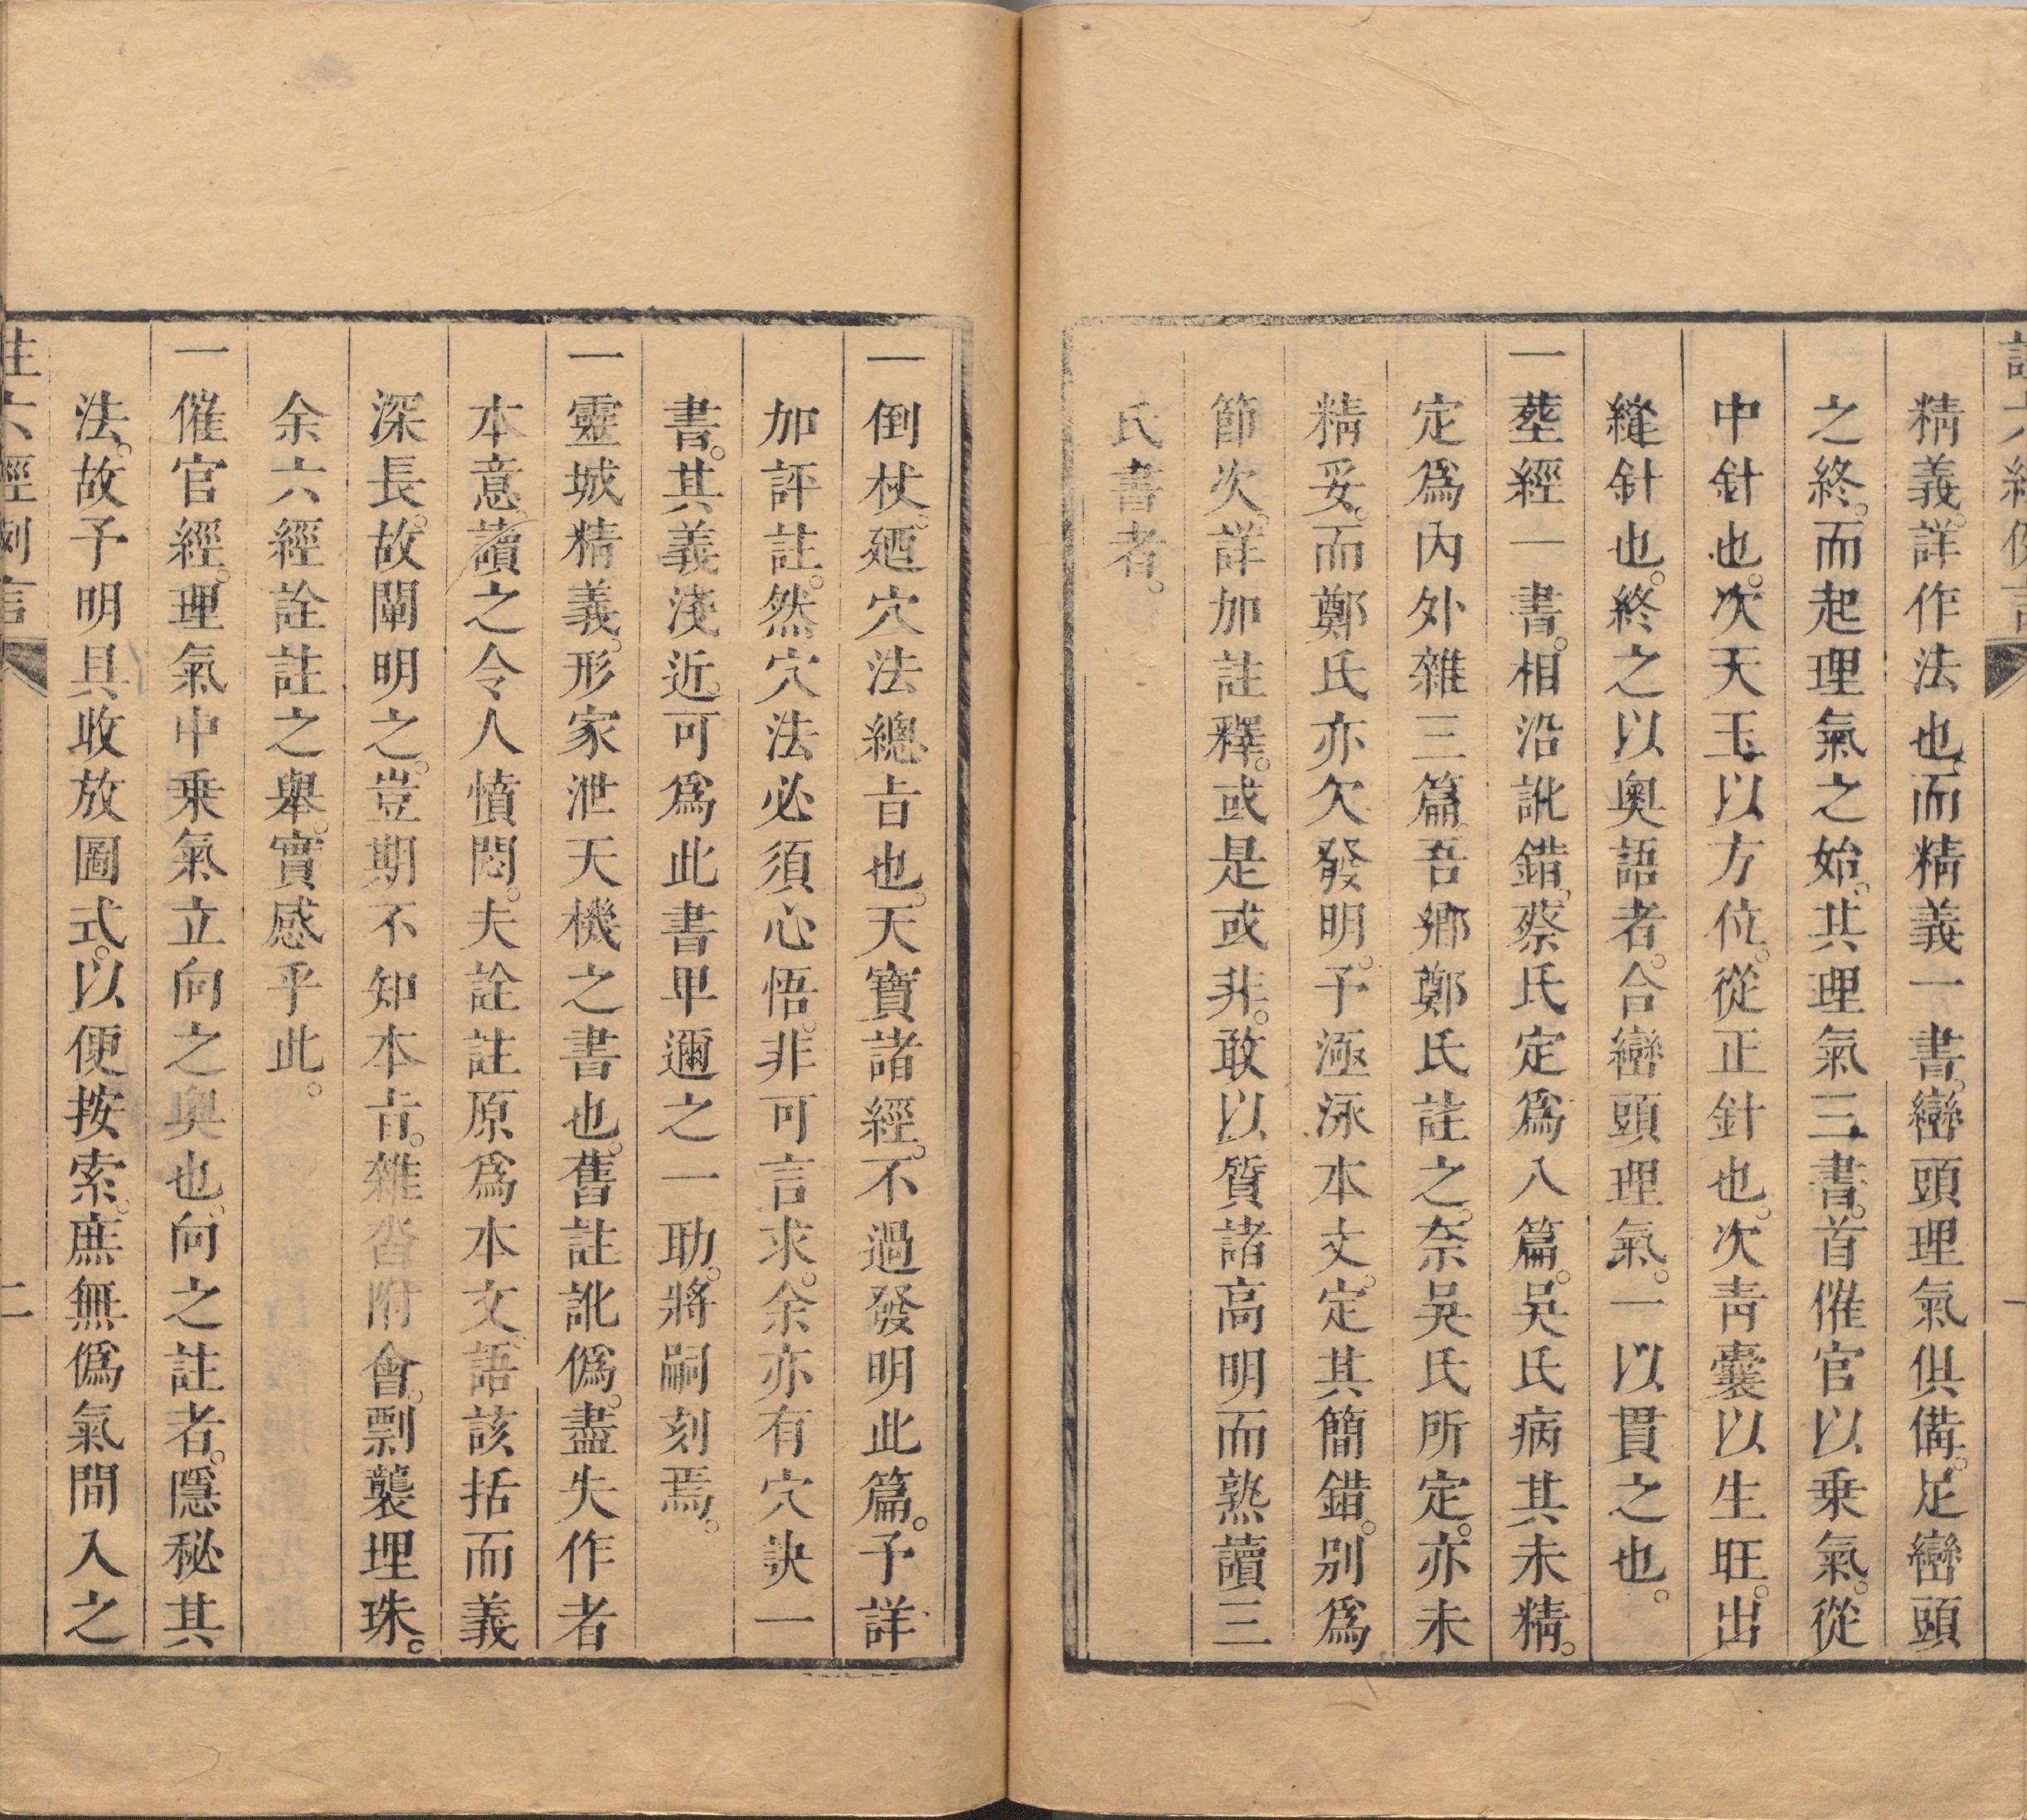 精義。詳作法也。而精義一書。巒頭理氣俱備。足巒頭
之終。而起理氣之始。其理氣三書。首催官以乗氣。從
中針也。次天玉以方位。從正針也。次靑囊以生旺。出
縫針也。終之以奥語者。合巒頭理氣。一以貫之也。
一塟經一書。相沿訛錯。蔡氏定爲八篇。吳氏病其未精。
定爲內外雜三篇。吾鄉鄭氏註之。奈吳氏所定。亦未
精妥。而鄭氏亦欠發明。予極泳本文。定其簡錯。别爲
節次。詳加註釋。或是或非。敢以質諸高明而熟讀三
氏書者。
一倒杖。廼穴法總㫖也。天寶諸經。不過發明此篇。予詳
加評註。然穴法必須心悟。非可言求。余亦有穴訣一
書。其義淺近。可爲此書卑邇之一助。將嗣刻焉。
一靈城精義。形家泄天機之書也。舊註訛僞。盡失作者
本意。讀之令人憤悶。夫詮註原爲本文。語該括而義
深長。故闡明之。豈期不知本㫖。雜沓附會。剽襲埋珠。
余六經詮註之舉。實感乎此。
一催官經。理氣中乗氣立向之奥也。向之註者。隱秘其
法。故予明具收放圖式。以便按索。庶無僞氣間入之
註六經例言
二